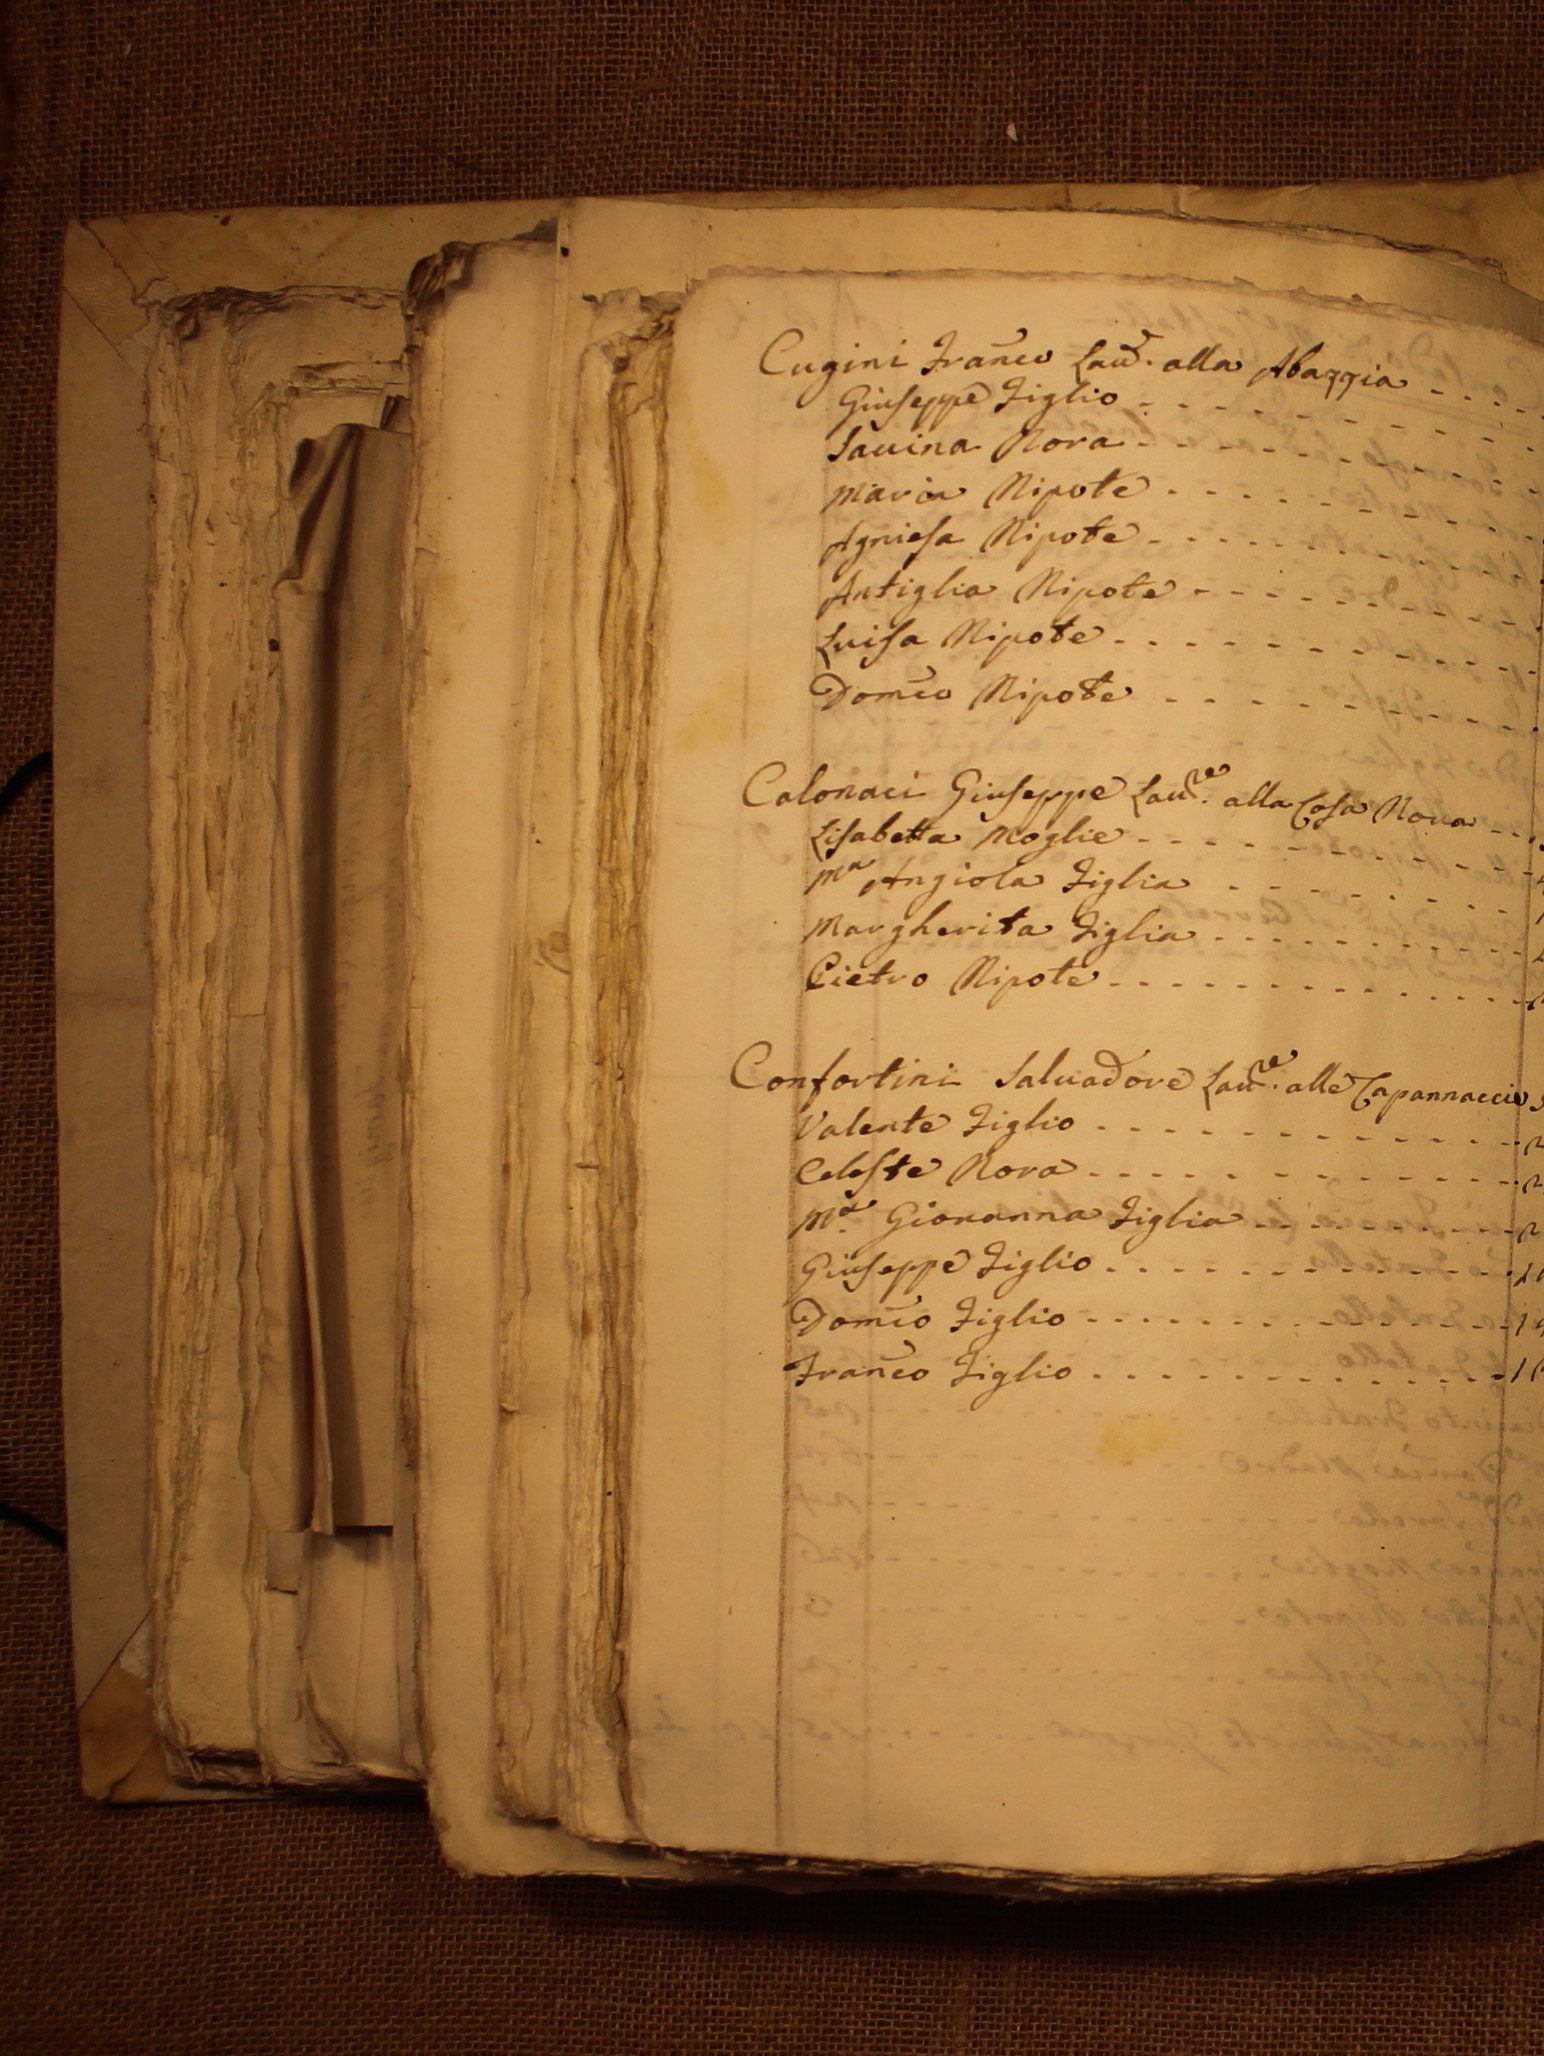 Cugini Franco Lau.re alla Abazzia
Giuseppe Figlio
Sauina Nora
Maria Nipote
Agniesa Nipote
Artiglia Nipote
Luisa Nipote
Domco Nipote
Calonaci Giuseppe Lau.re alla Casa Noua
Lisabetta Moglie
Ma Angiola Figlia
Margherita Figlia
Pietro Nipote
Confortini Saluadore Lau.re alle Capannaccie
Valente Figlio
Celeste Nora
Ma. Giovanna Figlia
Giuseppe Figlio
Domco Figlio
Franco Figlio